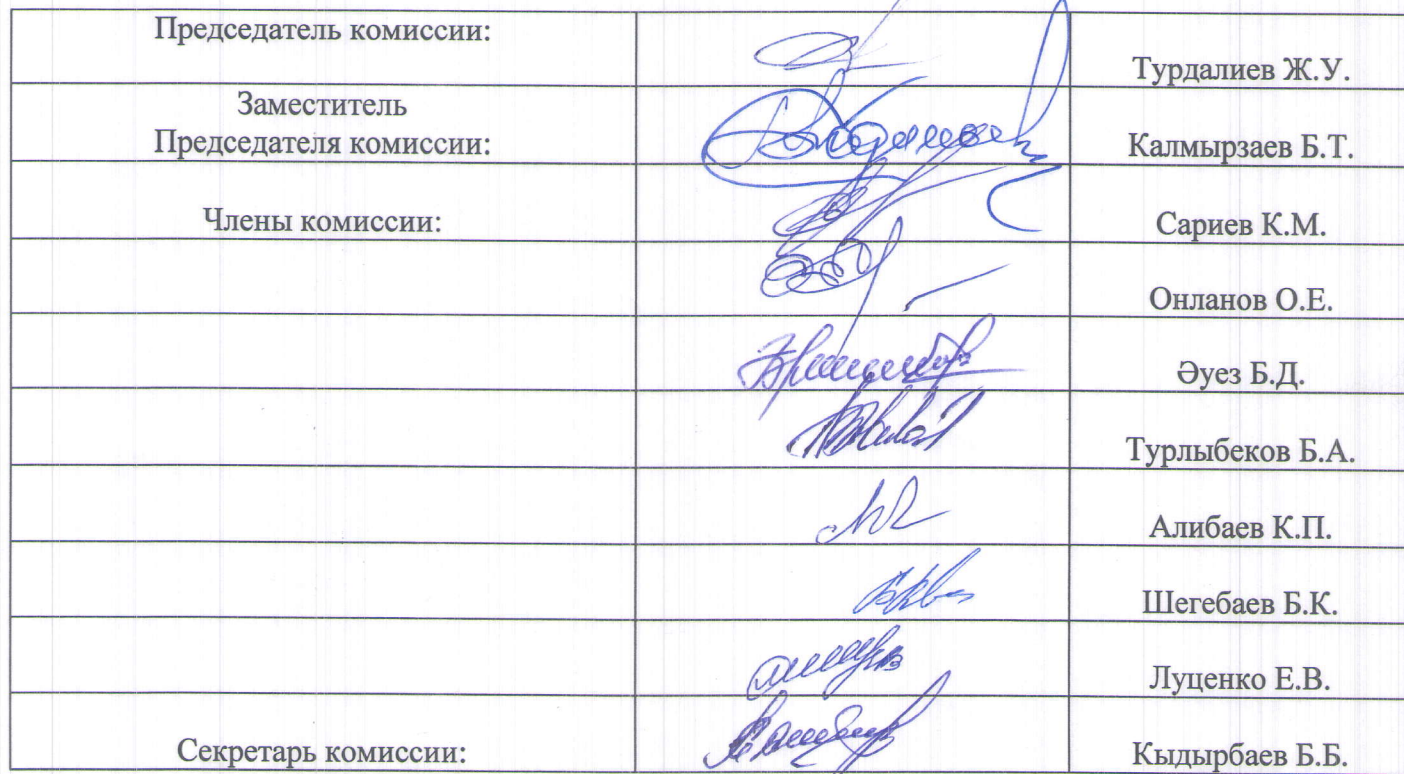 Председатель комиссии:
Турдалиев Ж.У.
Заместитель
Председателя комиссии:
Калмырзаев Б.Т.
Члены комиссии:
Сариев К.М.
Онланов О.Е.
Әуез Б.Д.
Турлыбеков Б.А.
Алибаев К.П.
Шегебаев Б.К.
Луценко Е.В.
Секретарь комиссии:
Кыдырбаев Б.Б.